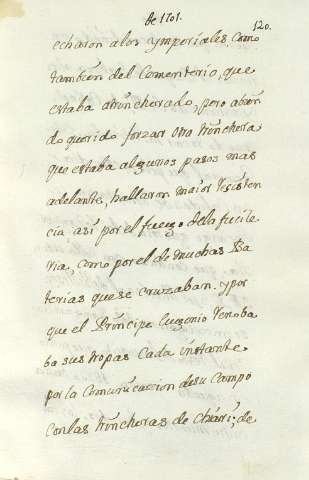 de 1701.
120.
echaron alos ymperiales, Como
tambien del Comenterio, que
estaba atrincherado, pero abien
do querido forzar otro trinchera
que estaba algunos pasos mas
adelante, hallaron maior resisten
cia asi por el fuego dela fusile
ria, como por el de muchas Ba
terias que se cruzaban. y por
que el Principe Eugenio renoba
ba sus tropas Cada instante
por la Comunicacion de su Campo
con las trincheras de chiari; de